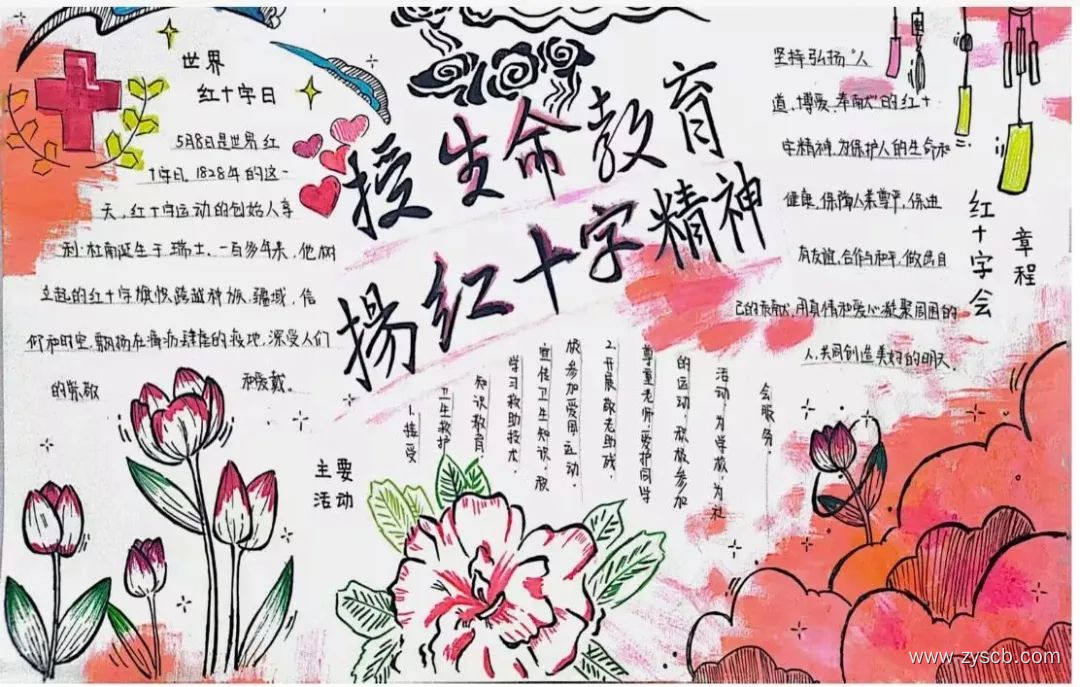 世界
红十字日
5月8日是世界红
十字日，1828年的这一
天，红十字运动的创始人亨
利·杜南诞生于瑞士。一百多年来，他树
立起的红十字旗帜跨越种族、疆域、信
仰和时空，飘扬在肆虐的疫地，深受人们
的崇敬 和爱戴。
授生命教育
揚红十字精神
坚持弘扬"人
道、博爱、奉献"的红十
字精神，为保护人的生命和
健康，保障人类尊严，促进
有友谊，合作与和平，做出自
己的贡献，用真情和爱心凝聚周围的
人，共同创造美好的明天。
红十字会
章程
主要
活动
1.接受
卫生救护
知识教育，
学习救助技术，
宣传卫生知识，积
极参加爱国运动。
2.开展敬老助残，
尊重老师，爱护同学
的运动，积极参加
活动，为学校，为社
会服务。
www.zyscb.com